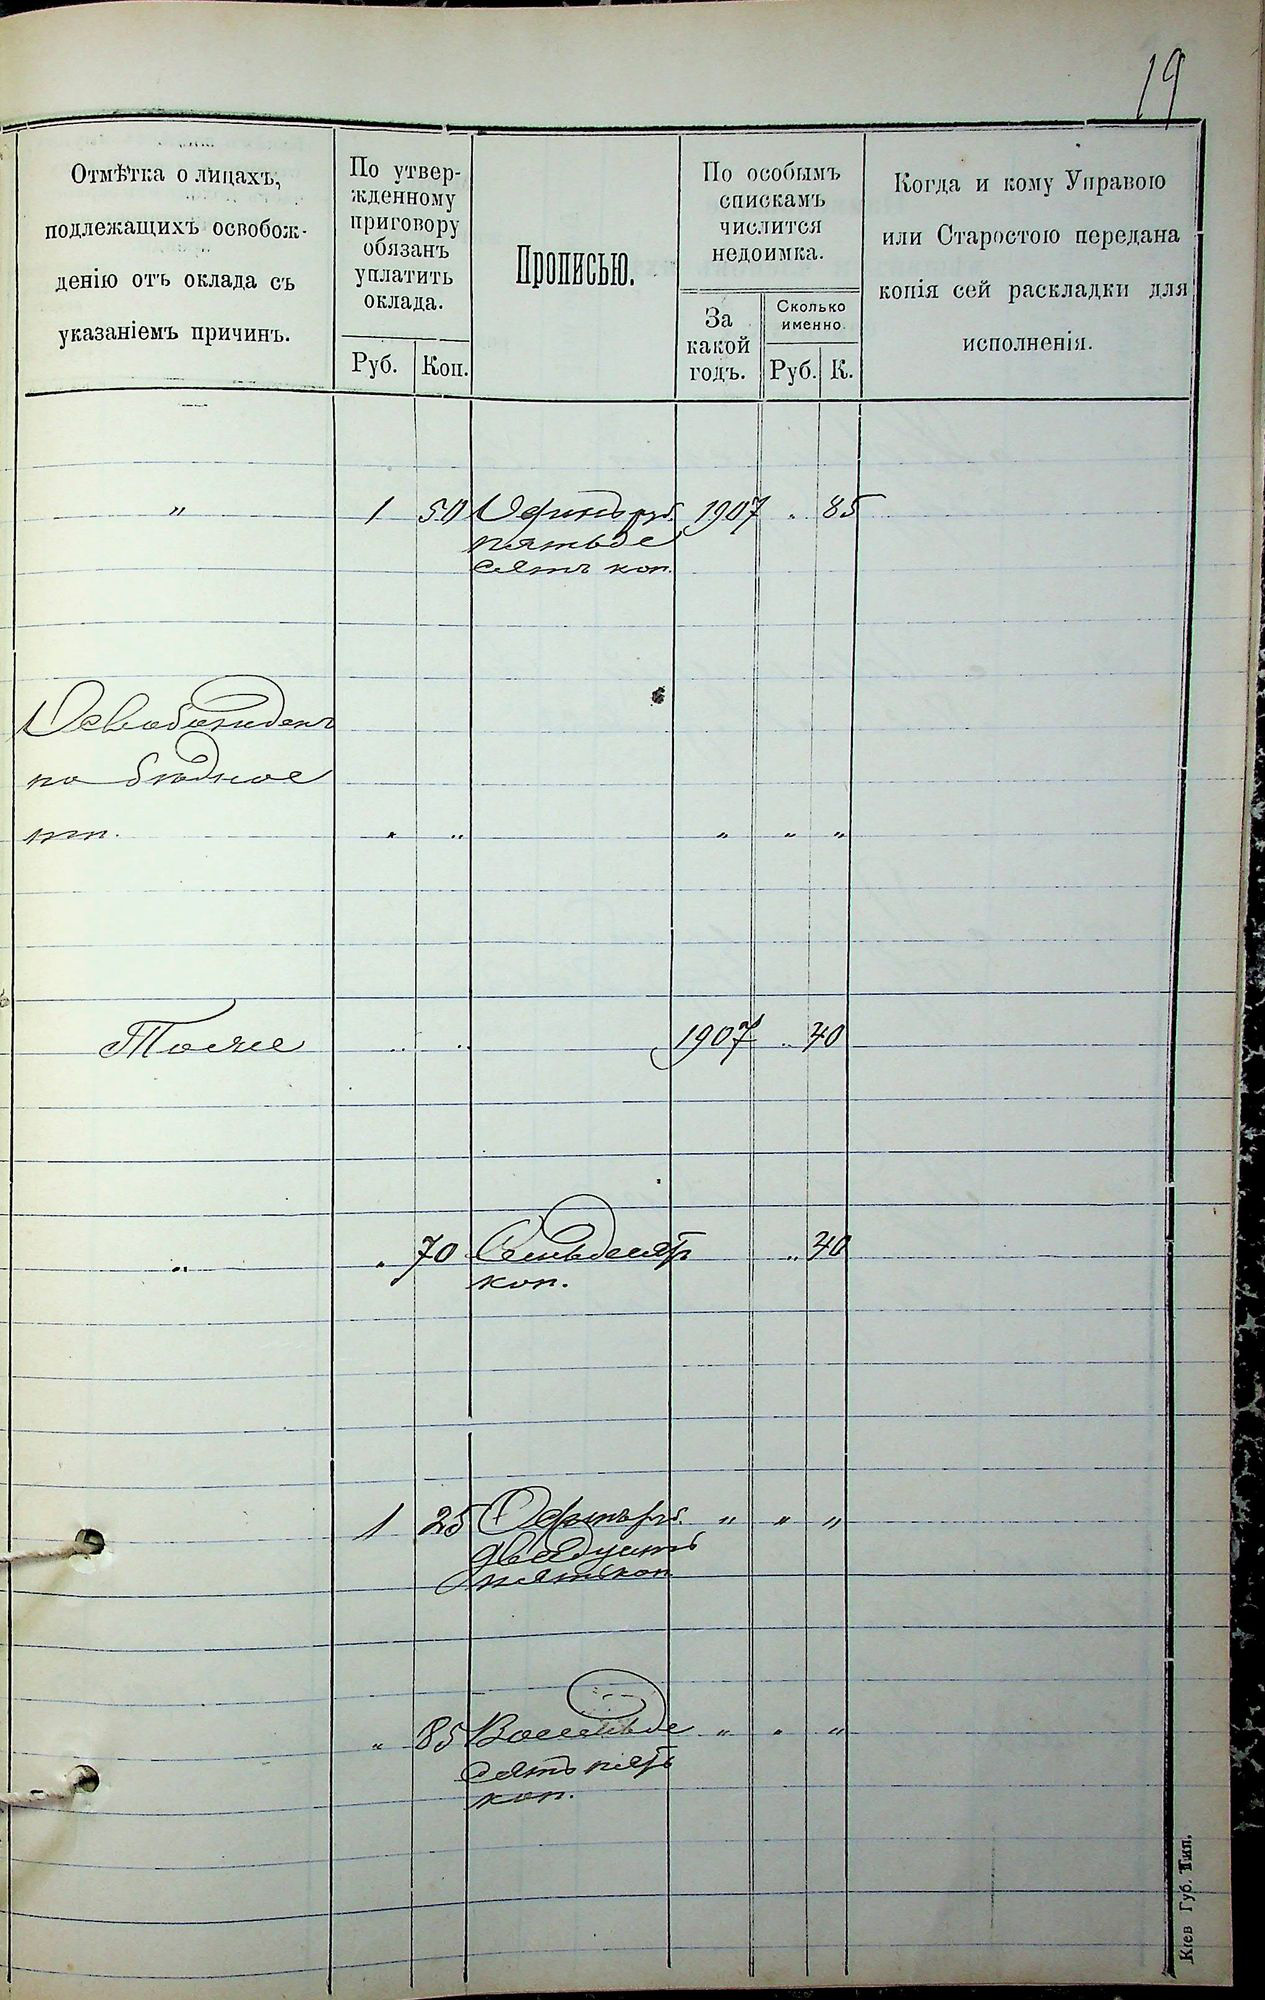 19
Отмѣтка о лицахъ,
подлежащихъ освобож-
денію отъ оклада съ
указаніемъ причинъ.
По утвер-
жденному
приговору
обязанъ
уплатить
оклада.
Руб. Коп.
Прописью.
По особымъ
спискамъ
числится
недоимка.
За
какой
годъ.
Сколько
именно.
Руб. К.
Когда и кому Управою
или Старостою передана
копія сей раскладки для
исполненія.
" 1 50 Одинъ руб. 1907 " 85
пятьде
сятъ коп.
Освобожденъ
по бѣдное
ти. " " " " "
Тоже " " 1907 " 40
" " 70 Семьдесятъ " 40
коп.
1 25 Одинъ руб. " " "
двадцать
пять коп
" 85 Восемьде " " "
сятъ пять
коп.
Кіев Губ. Тип.